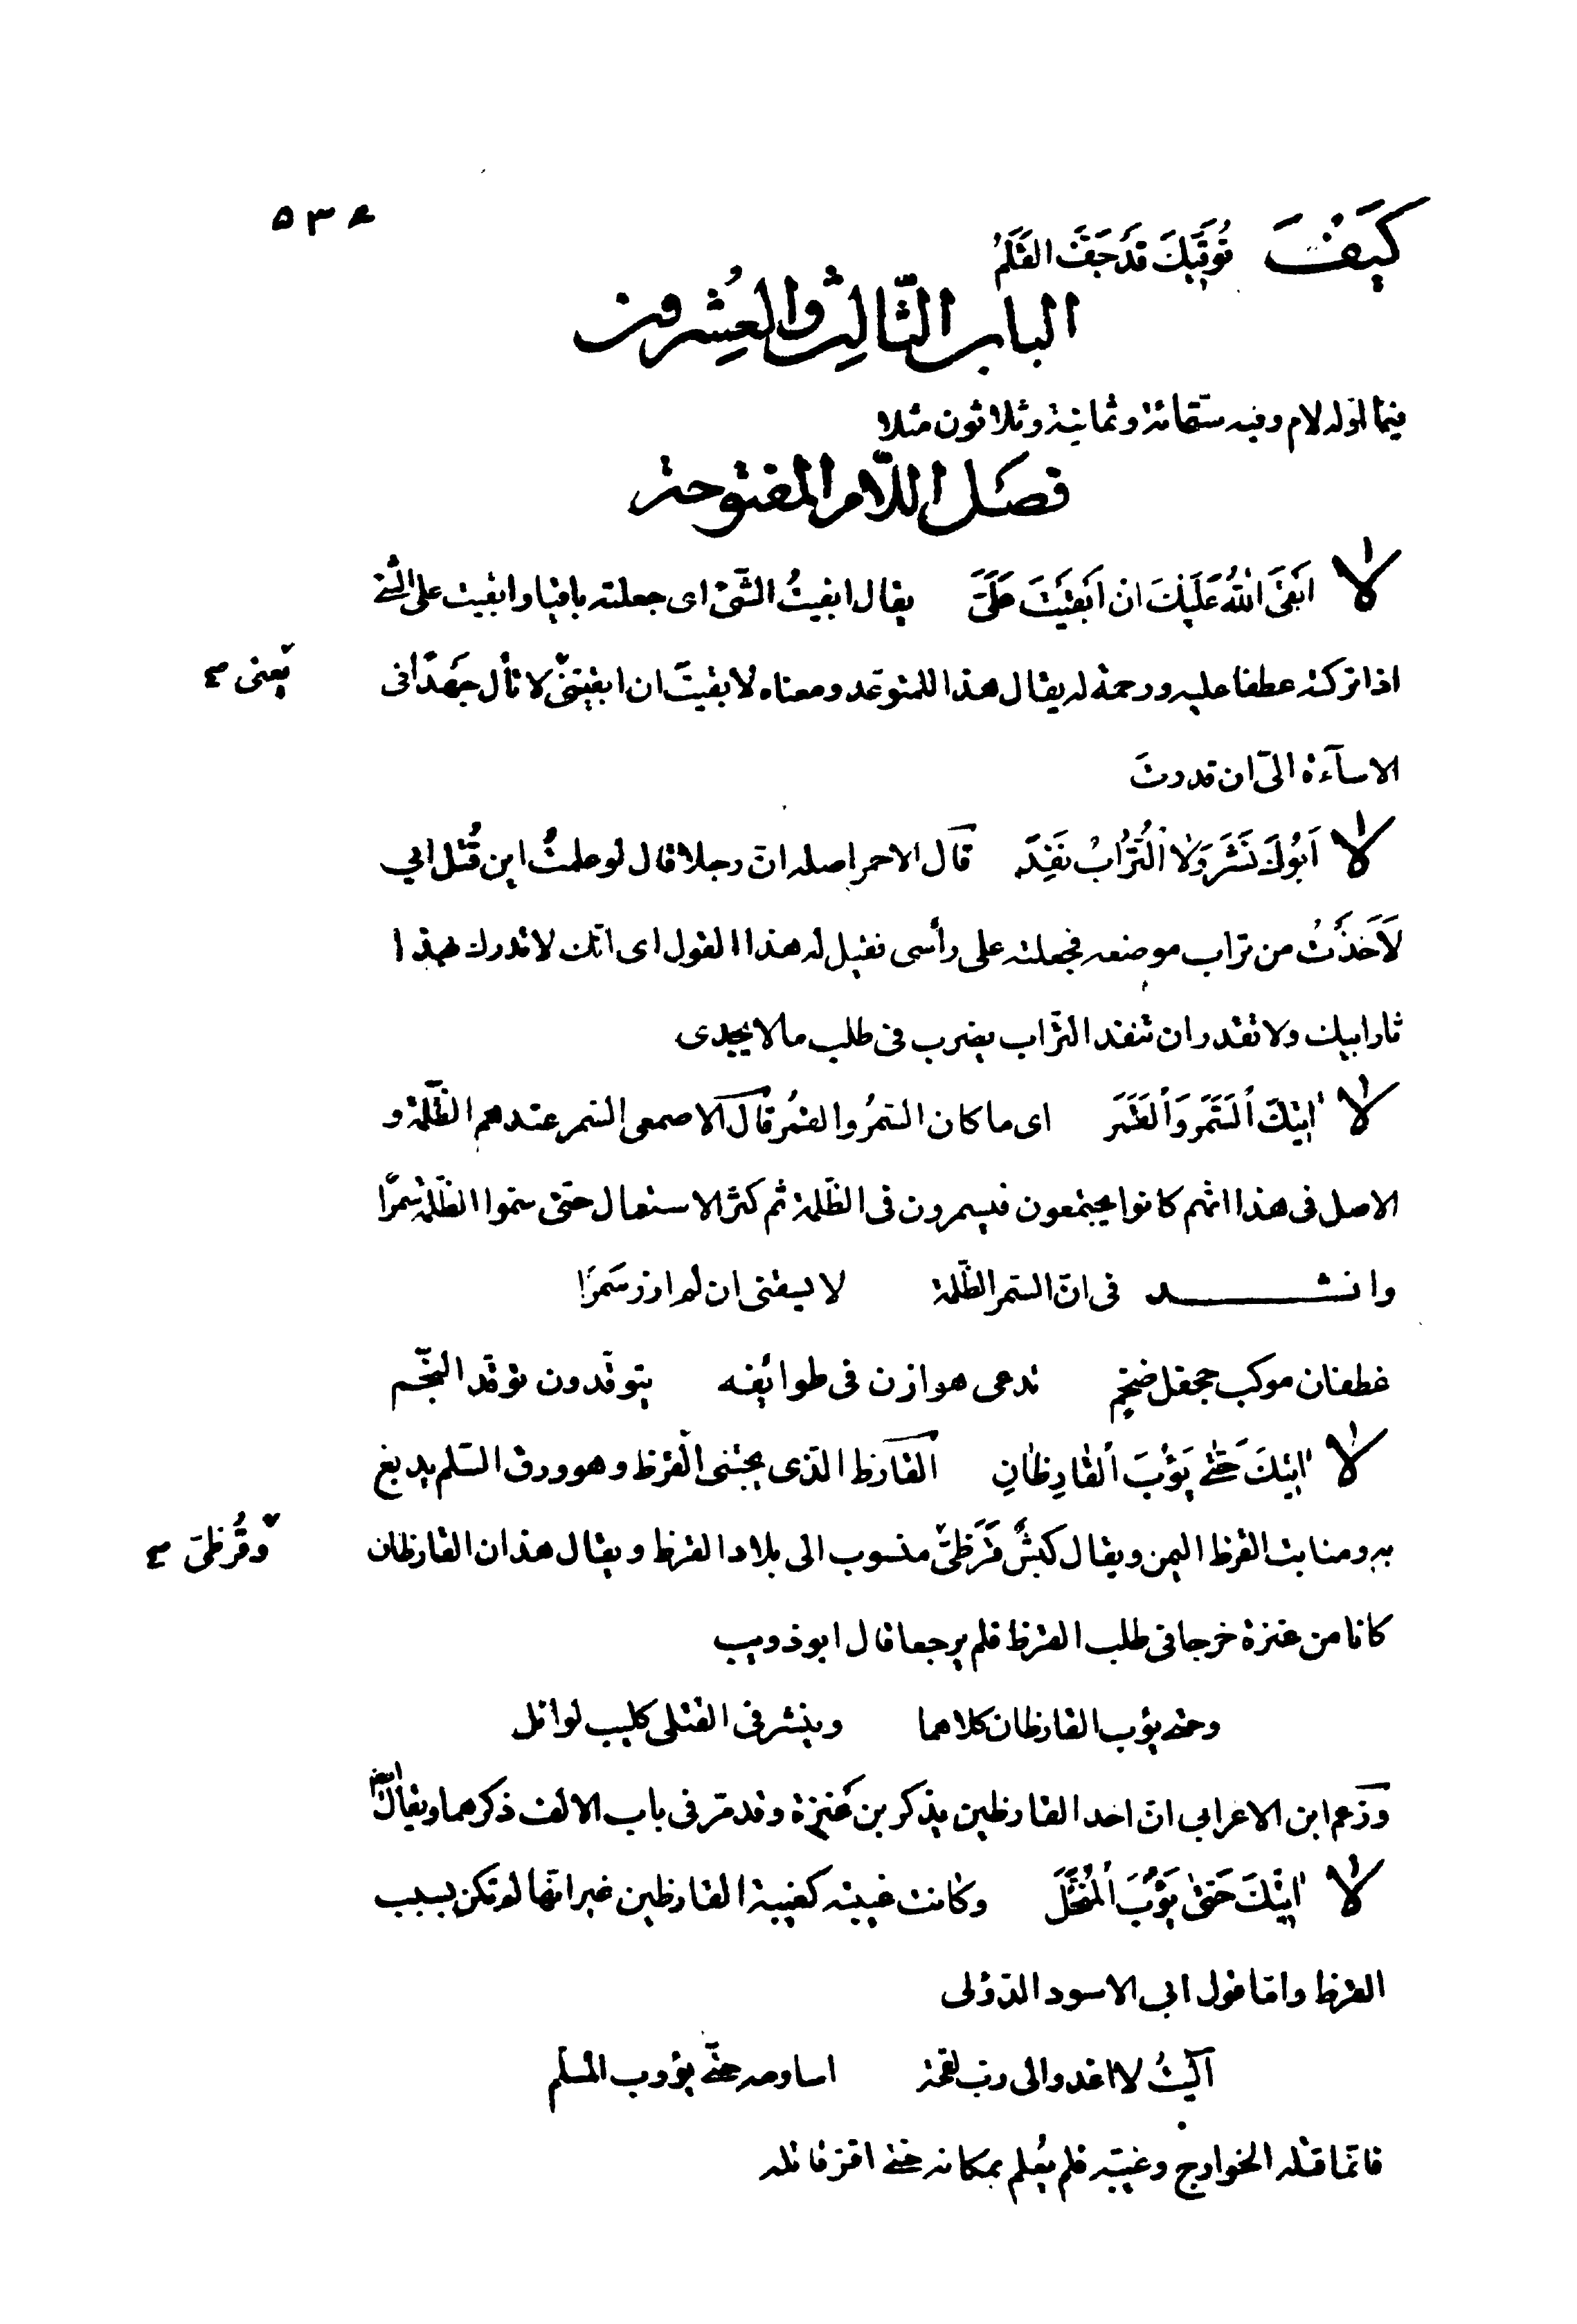 ۵۳۶
كَيْفَ تُوَقِّيكَ قَدْ جَفَّ القَلَمُ
الباب الثّالث والعِشرون
فيما اوله لام وفيه ستمائة وثمانية وثلاثون مثلا
فصل اللّام المفتوحة
لا اَبْقَى اللهُ عَلَيْكَ ان اَبْقَيْتَ عَلَىَّ يقال ابقيتُ الشّئ اى جعلته باقيا وابقيت على الشئ
اذا تركته عطفا عليه ورحمة له يقال هذا للمتوعّد ومعناه لا بقيتَ ان ابقيتنى لا تأل جَهدًا فى
يعنى
الاسآءة الىّ ان قدرت
لا اَبُوكَ نَشَرَ وَلَا التُّرَابُ نَفِدَ قال الاحمر اصله انّ رجلا قال لو علمتُ اين قُتل ابى
لَاَخَذْتُ من تراب موضعه فجعلته على رأسى فقيل له هذا القول اى انّك لا تدرك بهذا
ثار ابيك ولا تقدر ان تنفد التّراب يضرب فى طلب ما لا يجدى
لا اٰتِيكَ السَّمَرَ وَالقَمَرَ اى ما كان السّمرُ والقمرُ قال الاصمعى السّمر عندهم الظّلمة و
الاصل فى هذا انّهم كانوا يجتمعون فيسمرون فى الظّلمة ثم كثر الاستعمال حتّى سمّوا الظّلمة سمرًا
وانشد فى انّ السّمر الظّلمة لا يسقنى ان لم ازر سَمَرًا
غطفان موكب جحفل ضخم تدعى هوازن فى طوايفه يتوقّدون توقّد النّجم
لا اٰتِيكَ حَتّٰى يَؤُبَ القَارِظَانِ القارظ الّذى يجتنى القرظ وهو ورق السّلم يدبغ
به ومنابت القرظ اليمن ويقال كبشٌ قَرَظىّ منسوب الى بلاد القرظ ويقال هذان القارظان
وقُرظىّ
كانا من عنزة خرجا فى طلب القرظ فلم يرجعا قال ابو ذويب
وحتى يؤب القارظان كلاهما وينشر فى القتلى كليب لوائل
وزعم ابن الاعرابى انّ احد القارظين يذكر بن عَنزة وقد مرّ فى باب الالف ذكرهما ويقال ايضا
لا اٰتِيكَ حَتّٰى يَؤُبَ المُنَخَّلَ وكانت غيبته كغيبة القارظين غير انّها لم تكن بسبب
القرظ وامّا قول ابى الاسود الدّؤلى
آليتُ لا اغدو الى ربّ لقحة اساومه حتّى يؤوب المثلم
فانّما قتله الخوارج وغيّبه فلم يعلم بمكانه حتى اقرّ قاتله